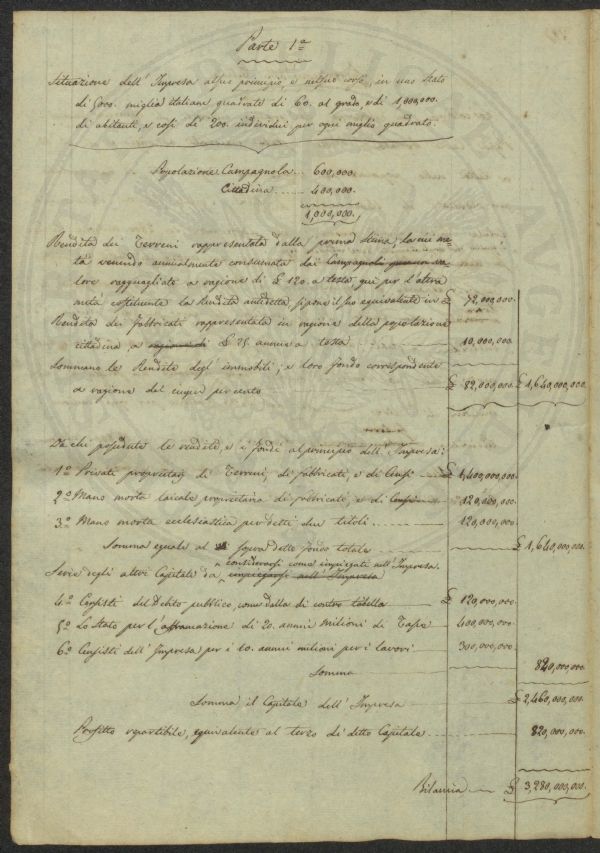 Parte 1ª
Situazione dell' Impresa al suo principio, e nel suo corso, in uno Stato
di 5000. miglia italiane quadrate di 60. al grado, e di 1,000,000.
di abitanti, e così di 200. individui per ogni miglio quadrato.
Popolazione Campagnola... 600,000.
Cittadina ...... 400,000.
1,000,000.
Rendita dei Terreni rappresentata dalla prima, la cui me-
tà venendo annualmente consumata dai Campagnoli
lore ragguagliato a ragione di £ 120. a testa, qui per l'altra
metà costituente la Rendita anzidetta, si pone il suo equivalente in £ 72,000,000.
Rendita dei fabbricati rappresentata in ragione della popolazione
cittadina a ragione di £ 25. annue a testa 10,000,000.
Sommano le Rendite degl' immobili; e loro fondo corrispondente
a ragione del cinque per cento £ 82,000,000. £ 1,640,000,000.
Da chi possedute le rendite, e i fondi al principio dell' Impresa:
1º Privati proprietarj di Terreni, di fabbricati, e di Censi £ 1,400,000,000.
2º Mano morta laicale proprietaria di fabbricati, e di Censi 120,000,000.
3º Mano morta ecclesiastica per detti due titoli 120,000,000.
Somma eguale al sopra detto fondo totale £ 1,640,000,000.
considerarsi come impiegati nell' Impresa.
Serie degli altri Capitali da impiegarsi nell' Impresa
4º Censisti del Debito pubblico, come dalla di contro tabella £ 120,000,000.
5º Lo Stato per l' di 20. annui milioni di Tasse 400,000,000.
6º Censisti dell' Impresa per i 10. annui milioni per i lavori 300,000,000.
Somma 820,000,000.
Somma il Capitale dell' Impresa £ 2,460,000,000.
Profitto repartibile, equivalente al terzo di detto Capitale 820,000,000.
Bilancia £ 3,280,000,000.